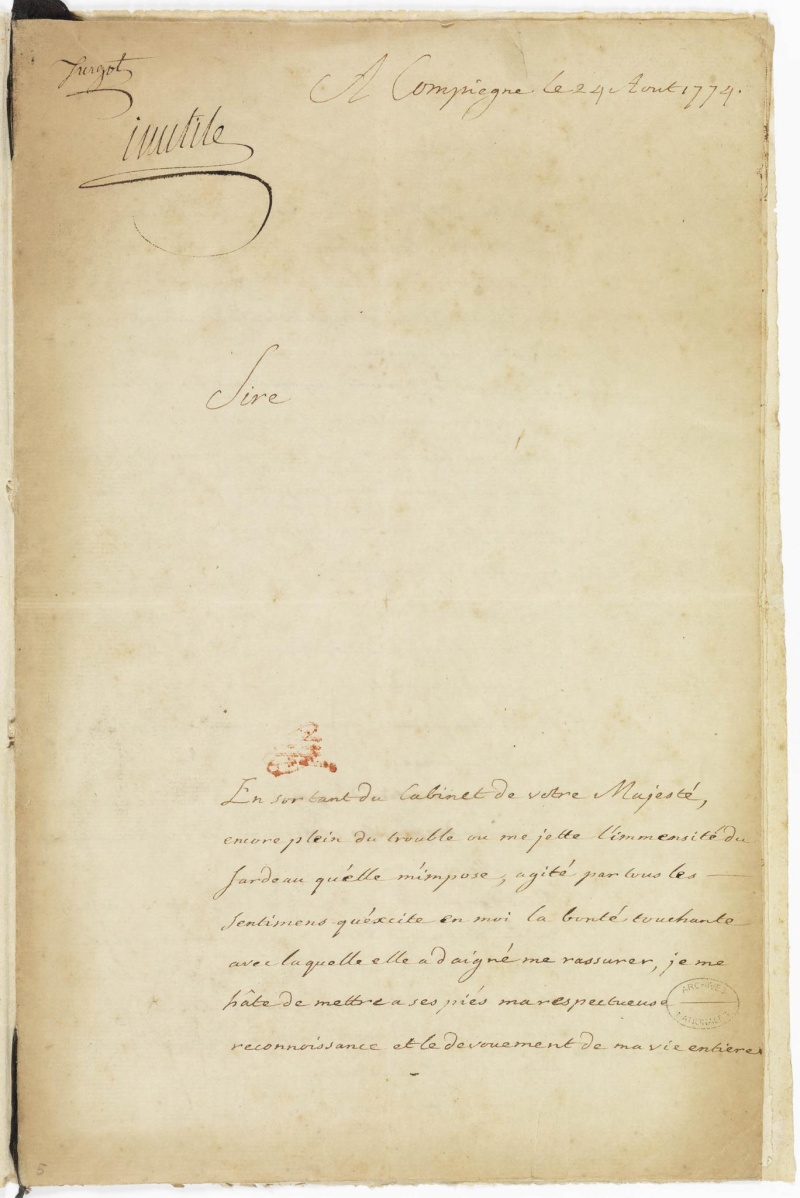 Turgot
A Compiegne le 24 Aout 1774.
inutile
Sire
En sortant du Cabinet de votre Majesté,
encore plein du trouble ou me jette l'immensité du
fardeau qu'elle m'impose, agité par tous les
sentimens qu'éxcite en moi la bonté touchante
avec laquelle elle a daigné me rassurer, je me
hâte de mettre a ses piés ma respectueuse
reconnoissance et le devouement de ma vie entiere.
ARCHIVES
NATIONALES
5